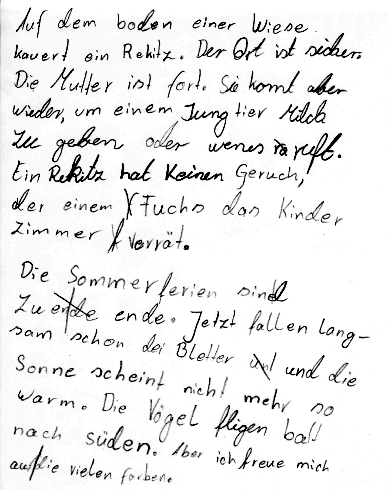 Auf dem boden einer Wiese
kauert ein Rekitz. Der Ort ist sicher.
Die Mutter ist fort. Sie komt aber
wieder, um einem Jungtier Milch
zu geben oder wenes ruft.
Ein Rekitz hat keinen Geruch,
der einem Fuchs das Kinder
zimmer verrät.
Die Sommerferien sind
zu ende ende. Jetzt fallen lang-
sam schon dei Bletter und die
Sonne scheint nicht mehr so
warm. Die Vögel fligen balt
nach süden. Aber ich freue mich
auf die vielen farben.